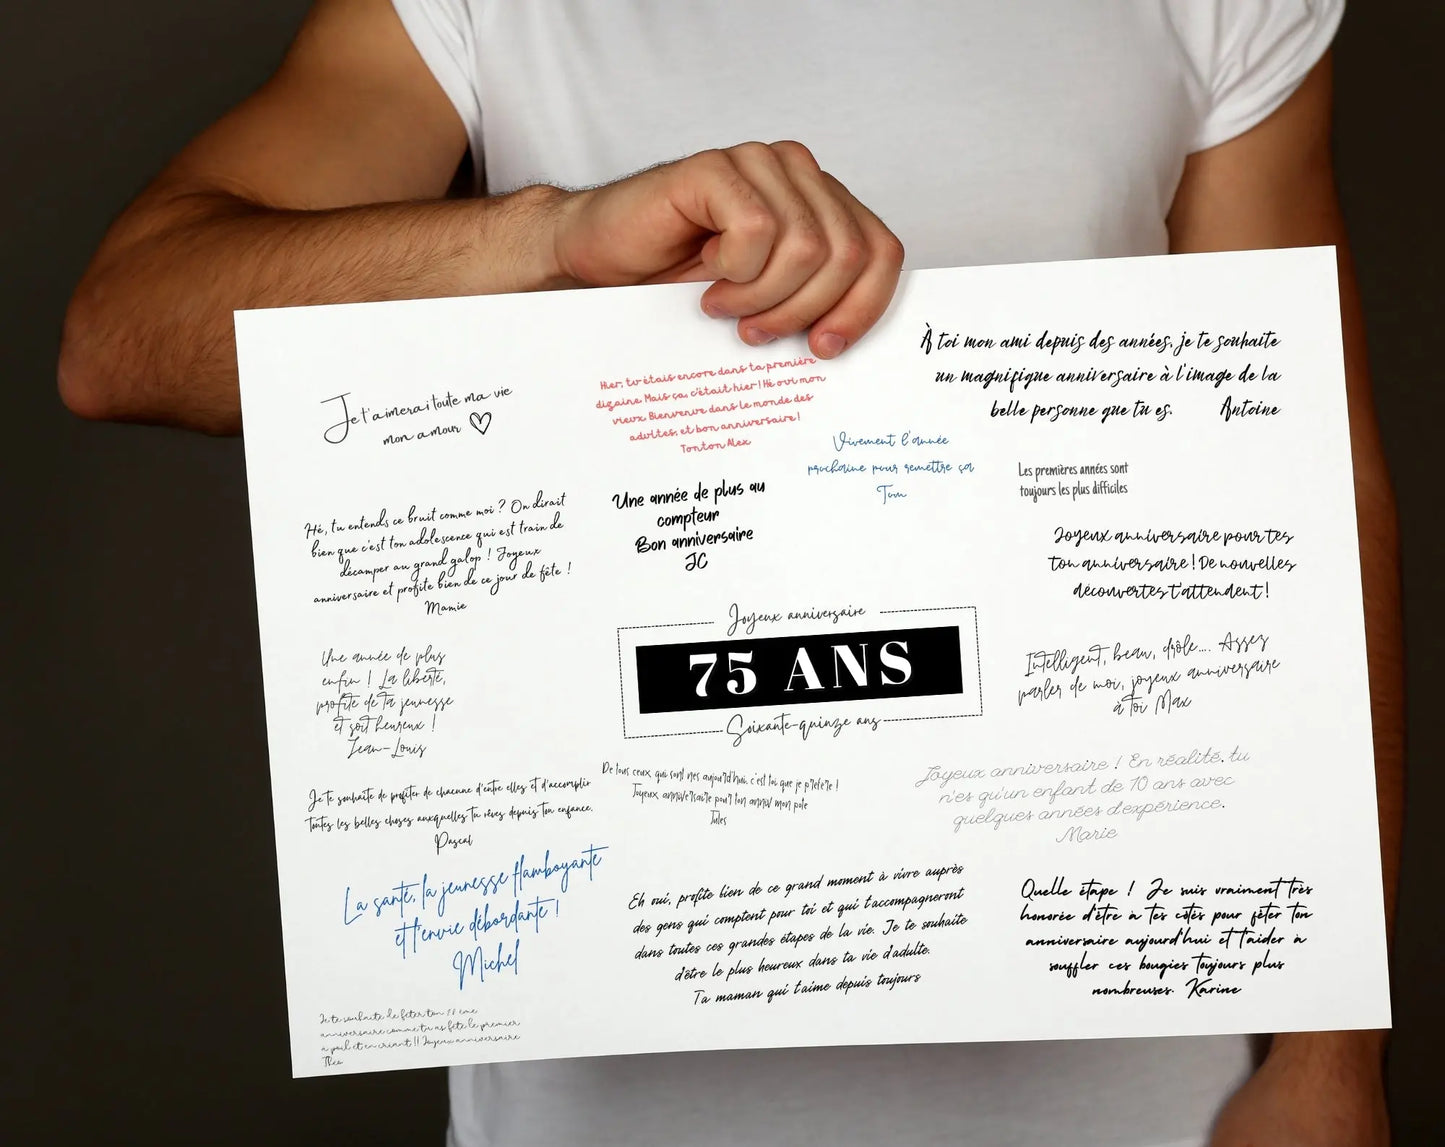 Je t'aimerai toute ma vie
mon amour
Hier, tu étais encore dans ta première
dizaine. Mais ça, c'était hier ! Hé oui mon
vieux. Bienvenue dans le monde des
adultes, et bon anniversaire !
Tonton Alex
À toi mon ami depuis des années, je te souhaite
un magnifique anniversaire à l'image de la
belle personne que tu es. Antoine
Vivement l'année
prochaine pour remettre ça
Tom
Les premières années sont
toujours les plus difficiles
Hé, tu entends ce bruit comme moi ? On dirait
bien que c'est ton adolescence qui est train de
décamper au grand galop ! Joyeux
anniversaire et profite bien de ce jour de fête !
Mamie
Une année de plus au
compteur
Bon anniversaire
JC
Joyeux anniversaire pour tes
ton anniversaire ! De nouvelles
découvertes t'attendent !
Une année de plus
enfin ! La liberté,
profite de ta jeunesse
et soit heureux !
Jean-Louis
Joyeux anniversaire
75 ANS
Soixante-quinze ans
Intelligent, beau, drôle.... Assez
parler de moi, joyeux anniversaire
à toi Max
Je te souhaite de profiter de chacune d'entre elles et d'accomplir
toutes les belles choses auxquelles tu rêves depuis ton enfance.
Pascal
De tous ceux, qui sont nes aujourd'hui, c'est toi que je préfère !
Joyeux, anniversaire pour ton anniv mon pote
Jules
Joyeux anniversaire ! En réalité, tu
n'es qu'un enfant de 10 ans avec
quelques années d'expérience.
Marie
La santé, la jeunesse flamboyante
et l'envie débordante !
Michel
Eh oui, profite bien de ce grand moment à vivre auprès
des gens qui comptent pour toi et qui t'accompagneront
dans toutes ces grandes étapes de la vie. Je te souhaite
d'être le plus heureux dans ta vie d'adulte.
Ta maman qui t'aime depuis toujours
Quelle étape ! Je suis vraiment très
honorée d'être à tes côtés pour fêter ton
anniversaire aujourd'hui et t'aider à
souffler ces bougies toujours plus
nombreuses. Karine
Je te souhaite de fêter ton 11 ème
anniversaire comme tu as fêté le premier
a poil et en criant !! Joyeux anniversaire
Théo